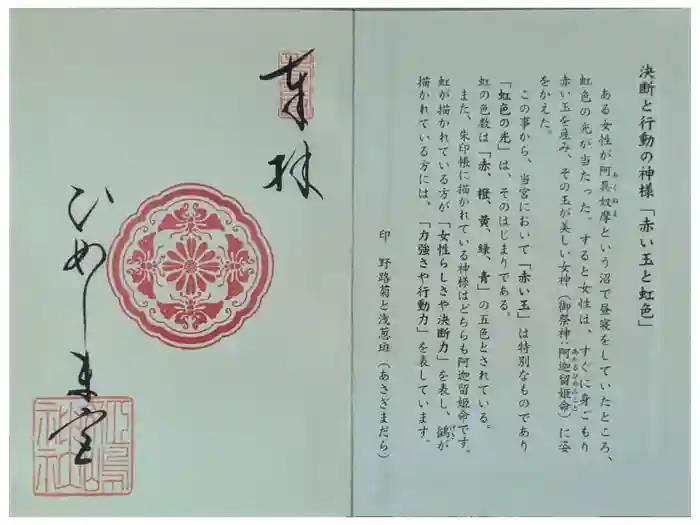 決断と行動の神様「赤い玉と虹色」
ある女性が阿具奴摩という沼で昼寝をしていたところ、
虹色の光が当たった。すると女性は、すぐに身ごもり
赤い玉を産み、その玉が美しい女神（御祭神：阿迦留姫命）に姿
をかえた。
この事から、当宮において「赤い玉」は特別なものであり
「虹色の光」は、そのはじまりである。
虹の色数は「赤、橙、黄、緑、青」の五色とされている。
また、朱印帳に描かれている神様はどちらも阿迦留姫命です。
虹が描かれている方が「女性らしさや決断力」を表し、鷁が
描かれている方には、「力強さや行動力」を表しています。
印 野路菊と浅葱斑（あさぎまだら）
奉拝
ひめしま宮